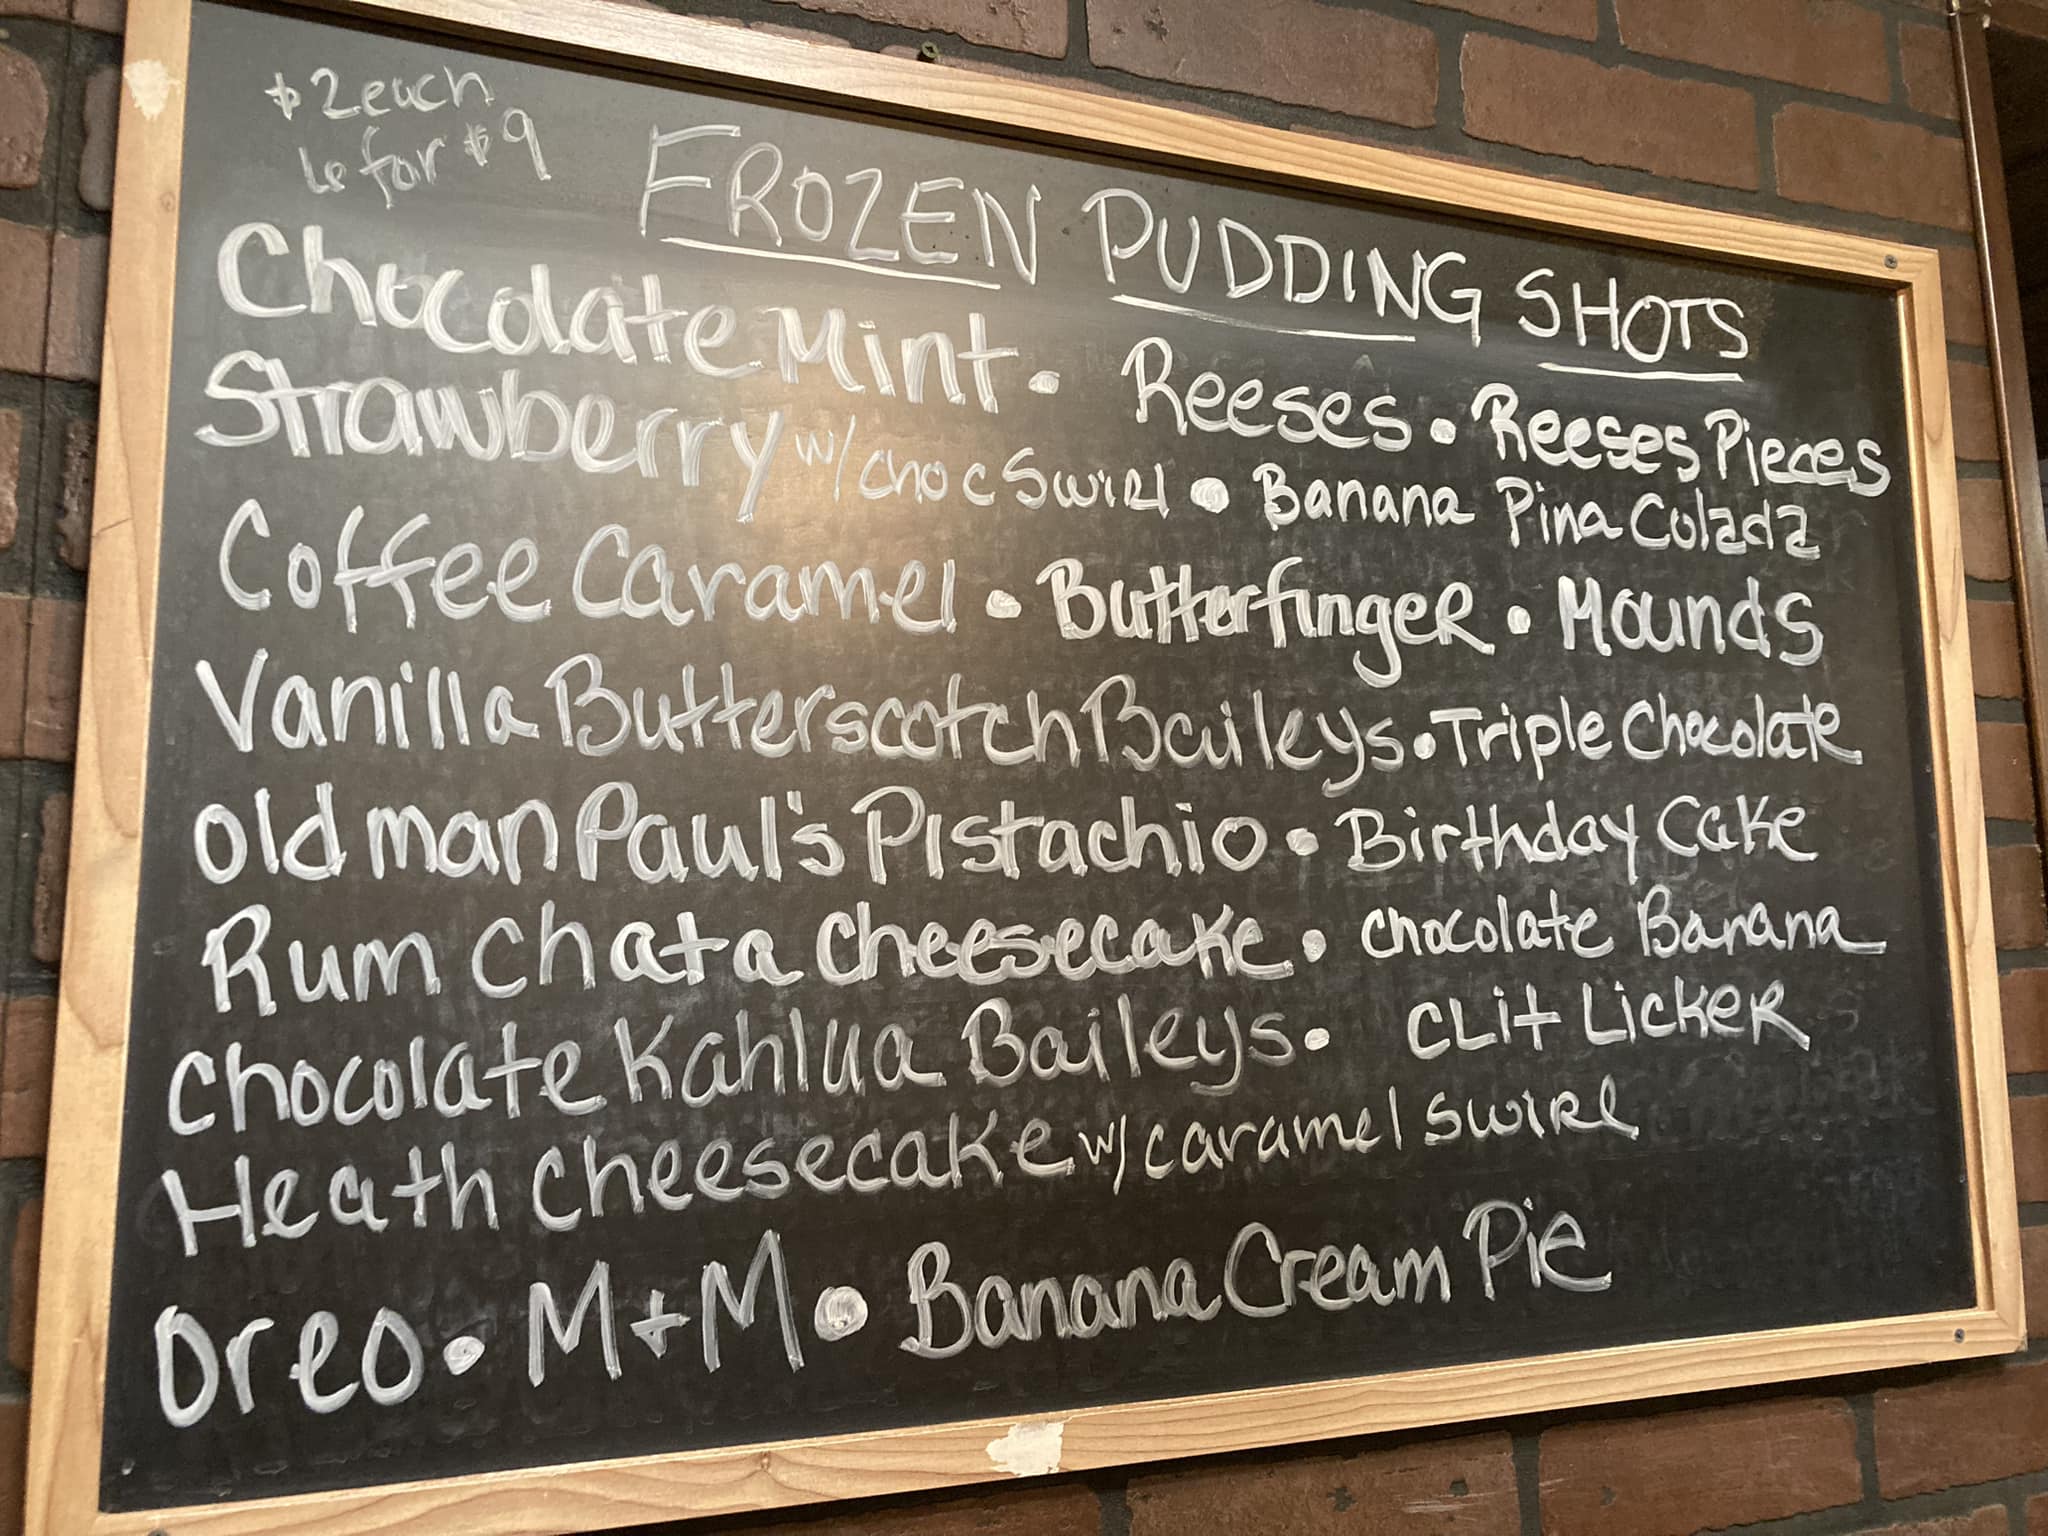 $2 each
6 for $9
FROZEN PUDDING SHOTS
Chocolate Mint • Reeses • Reeses Pieces
Strawberry w/ choc Swirl • Banana Pina Colada
Coffee Caramel • Butterfinger • Mounds
Vanilla Butterscotch Baileys • Triple Chocolate
Old man Paul's Pistachio • Birthday Cake
Rum Chata Cheesecake • Chocolate Banana
Chocolate Kahlua Baileys • Clit Licker
Heath Cheesecake w/ caramel swirl
Oreo • M+M • Banana Cream Pie